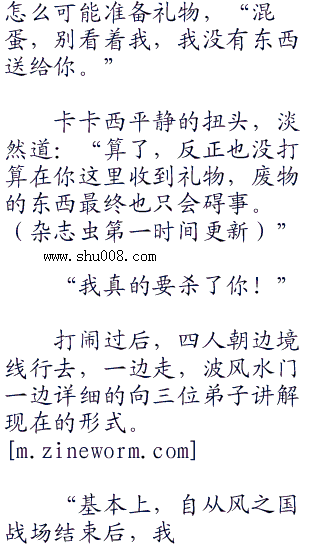 怎么可能准备礼物，“混
蛋，别看着我，我没有东西
送给你。”
卡卡西平静的扭头，淡
然道：“算了，反正也没打
算在你这里收到礼物，废物
的东西最终也只会碍事。
（杂志虫第一时间更新）”
www.shu008.com
“我真的要杀了你！”
打闹过后，四人朝边境
线行去，一边走，波风水门
一边详细的向三位弟子讲解
现在的形式。
[m.zineworm.com]
“基本上，自从风之国
战场结束后，我